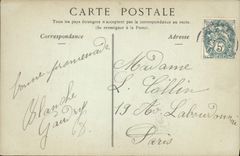 CARTE POSTALE
Tous les pays étrangers n'acceptent pas la correspondance au recto.
(Se renseigner à la Poste).
Correspondance
Adresse
bonne promenade
Blanche
Madame
L. Collin
13 Av. Labourdonnais
Paris
5